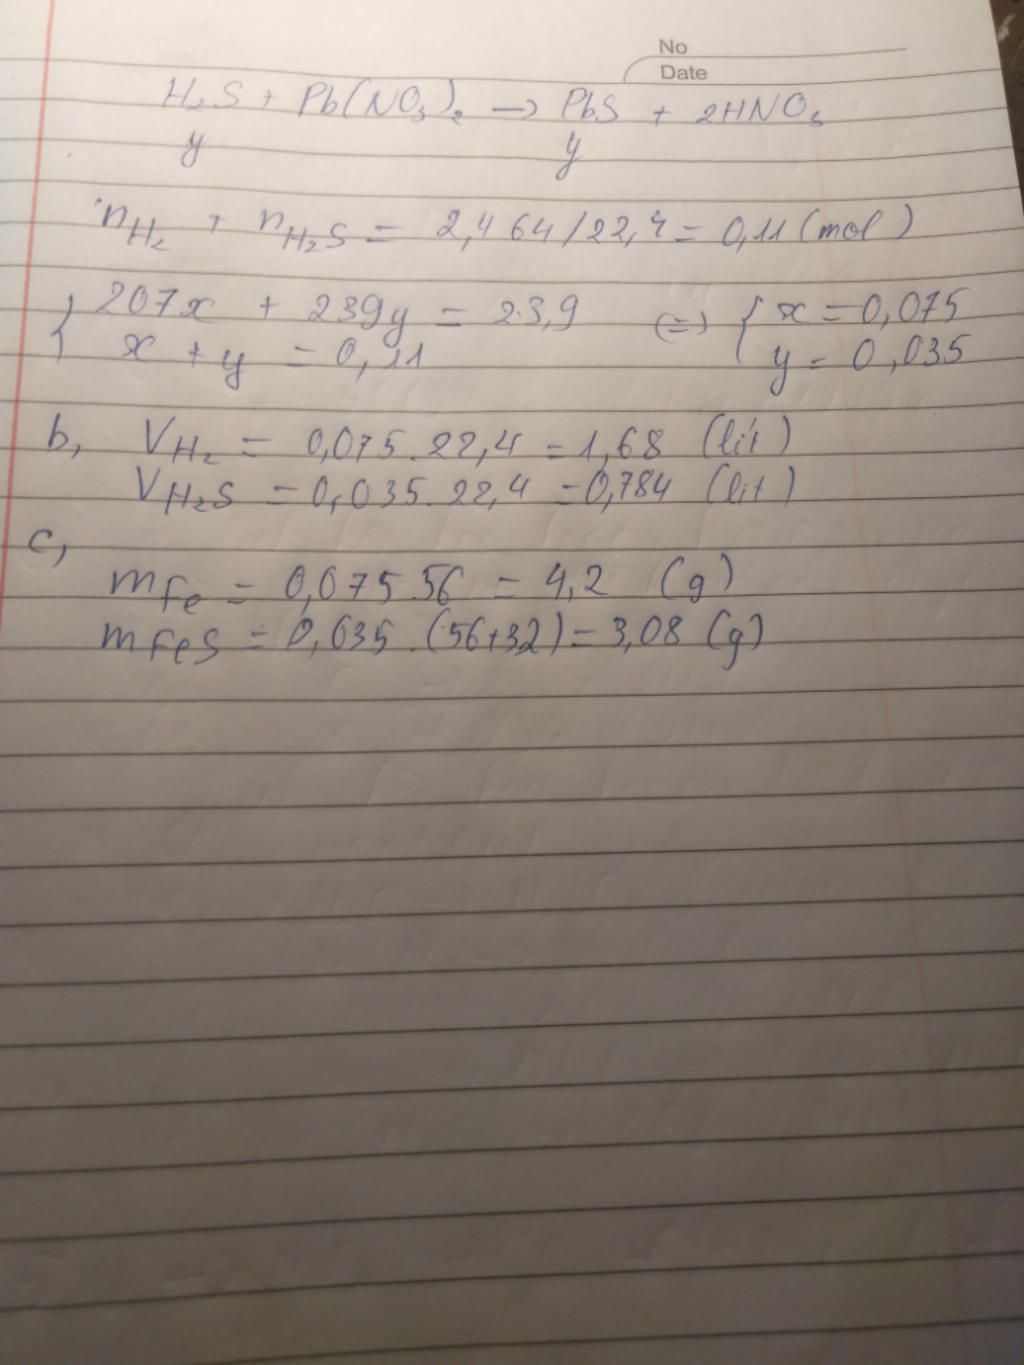 No
Date
H₂S + Pb(NO₃)₂ → PbS + 2HNO₃
y y
n H₂ + n H₂S = 2,464/22,4 = 0,11 (mol)
{ 207x + 239y = 23,9 (=) { x = 0,075
x + y = 0,11 y = 0,035
b, V H₂ = 0,075.22,4 = 1,68 (lít)
V H₂S = 0,035.22,4 = 0,784 (lit)
c,
m Fe = 0,075.56 = 4,2 (g)
m FeS = 0,035.(56+32) = 3,08 (g)